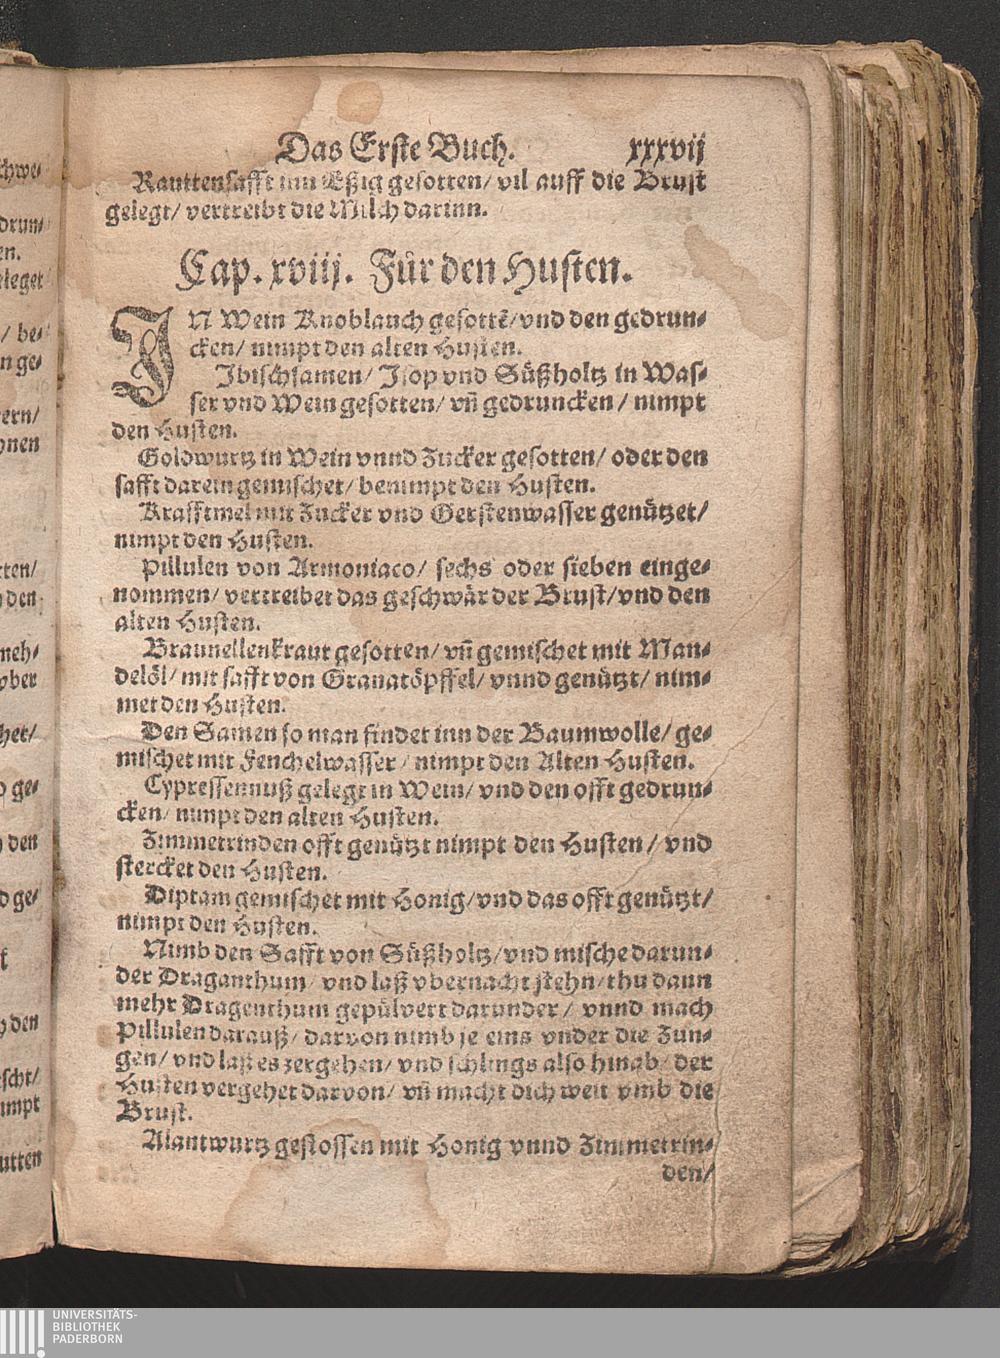 chwe⸗
drun⸗
en.
eleget
/ be⸗
n ge⸗
ern/
ynen
tten/
den
neh⸗
vber
het/
ge⸗
den
d ge⸗
den
scht/
impt
utten
Das Erste Buch. xxxvij
Rauttensafft inn Eßig gesotten/ vil auff die Brust
gelegt/ vertreibt die Milch darinn.
Cap. xviij. Für den Husten.
IN Wein Knoblauch gesottẽ/ vnd den gedrun⸗
cken/ nimpt den alten Husten.
Ibischsamen/ Isop vnd Süßholtz in Was⸗
ser vnd Wein gesotten/ vñ gedruncken/ nimpt
den Husten.
Goldwurtz in Wein vnnd Zucker gesotten/ oder den
safft darein gemischet/ benimpt den Husten.
Krafftmel mit Zucker vnd Gerstenwasser genützet/
nimpt den Husten.
Pillulen von Armoniaco/ sechs oder sieben einge⸗
nommen/ vertreibet das geschwär der Brust/ vnd den
alten Husten.
Braunellenkraut gesotten/ vñ gemischet mit Man⸗
delöl/ mit safft von Granatöpffel/ vnnd genützt/ nim⸗
met den Husten.
Den Samen so man findet inn der Baumwolle/ ge⸗
mischet mit Fenchelwasser/ nimpt den Alten Husten.
Cypressennuß gelegt in Wein/ vnd den offt gedrun⸗
cken/ nimpt den alten Husten.
Zimmetrinden offt genützt nimpt den Husten/ vnd
stercket den Husten.
Diptam gemischet mit Honig/ vnd das offt genützt/
nimpt den Husten.
Nimb den Safft von Süßholtz/ vnd mische darun⸗
der Draganthum/ vnd laß vbernacht stehn/ thu dann
mehr Dragenthum gepülvert darunder/ vnnd mach
Pillulen darauß/ darvon nimb je eins vnder die Zun⸗
gen/ vnd laß es zergehen/ vnd schlings also hinab/ der
Husten vergehet darvon/ vñ macht dich weit vmb die
Brust.
Alantwurtz gestossen mit Honig vnnd Zimmetrin⸗
den/
UNIVERSITÄTS-
BIBLIOTHEK
PADERBORN